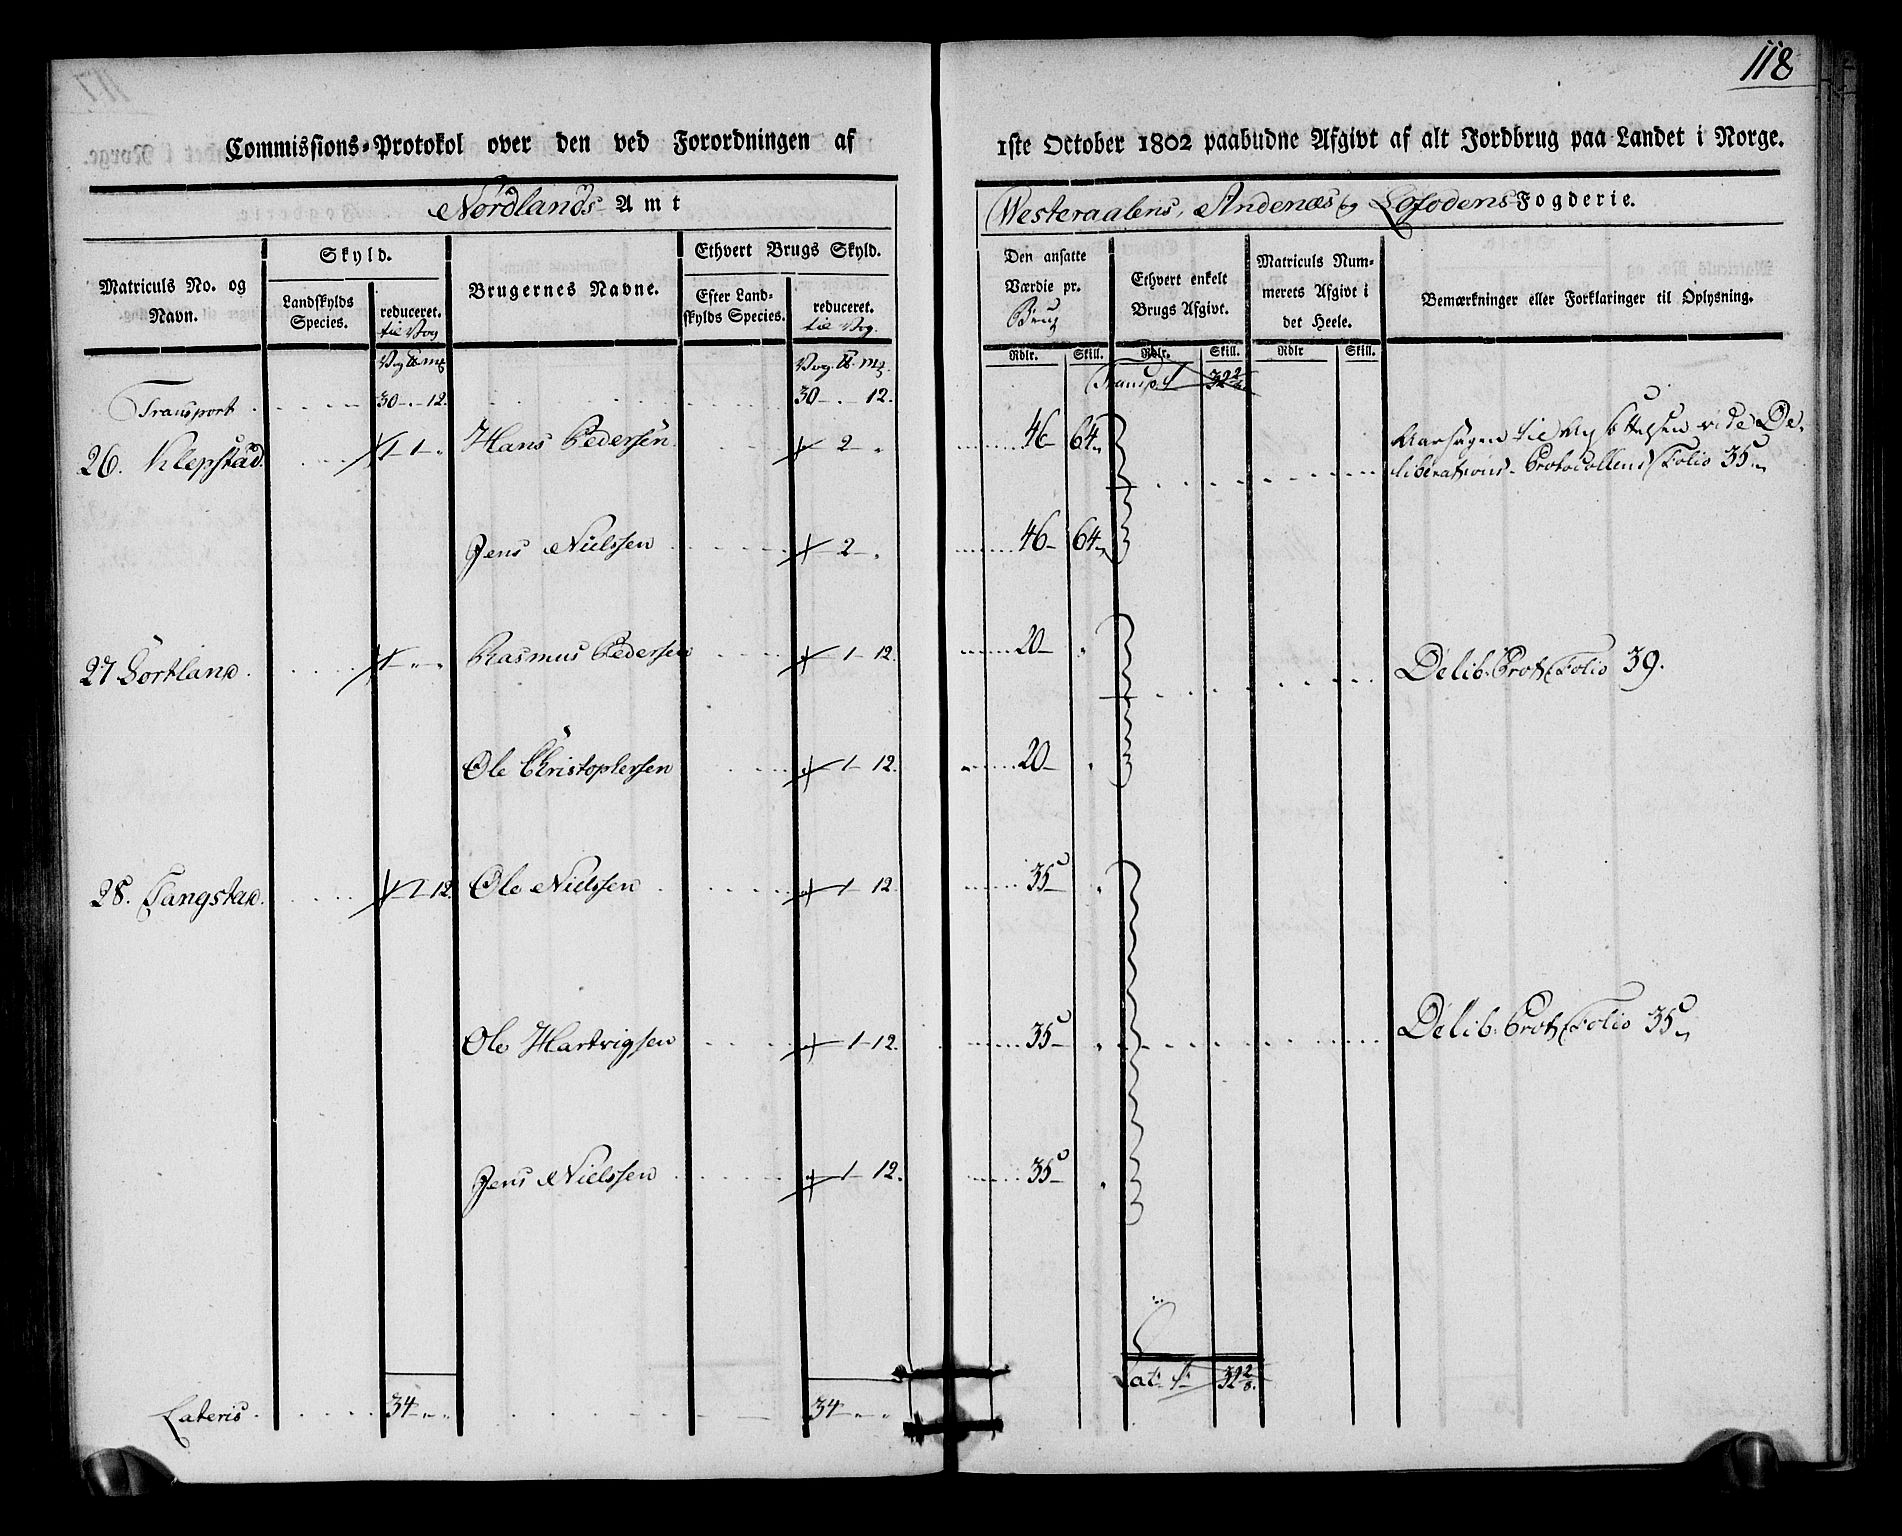 118
Commissions-Protokol over den ved Forordningen af 1ste October 1802 paabudne Afgivt af alt Jordbrug paa Landet i Norge.
Nordlands Amt
Westeraalens, Andenæs og Lofodens Fogderie.
Matriculs No. og Navn.
Skyld.
Landskylds Species.
reduceret. til Vog
Brugernes Navne.
Ethvert Brugs Skyld.
Efter Landskylds Species.
reduceret. til Vog.
Den ansatte Værdie pr. Brug
Ethvert enkelt Brugs Afgivt.
Matriculs Nummerets Afgivt i det Heele.
Bemærkninger eller Forklaringer til Oplysning.
Rdlr. Skill. Rdlr. Skill. Rdlr Skill.
Transport 30 - „ - 12. 30 - „ - 12. Transpt
26. Klepstad 1 - 1 - „ Hans Pedersen 2 - „ 46 - 64 Aarsagen til Nedsættelsen vide De-
liberations-Protocollens Folio 35
Jens Nielssen 2 - „ 46 - 64
27 Sørtland. 1 - „ - „ Rasmus Pedersen 1 - 12. 20 - „ Delib. Prot. Folio 39.
Ole Christophersen 1 - 12. 20 - „
28. Tangstad. 1 - 1 - 12. Ole Nielssen 1 - 12. 35 - „
Ole Hartvigsen 1 - 12. 35 - „ Delib. Prot. Folio 35
Jens Nielssen 1 - 12. 35 - „
Lateris 34 - „ - „ 34 - „ - „ Lat.